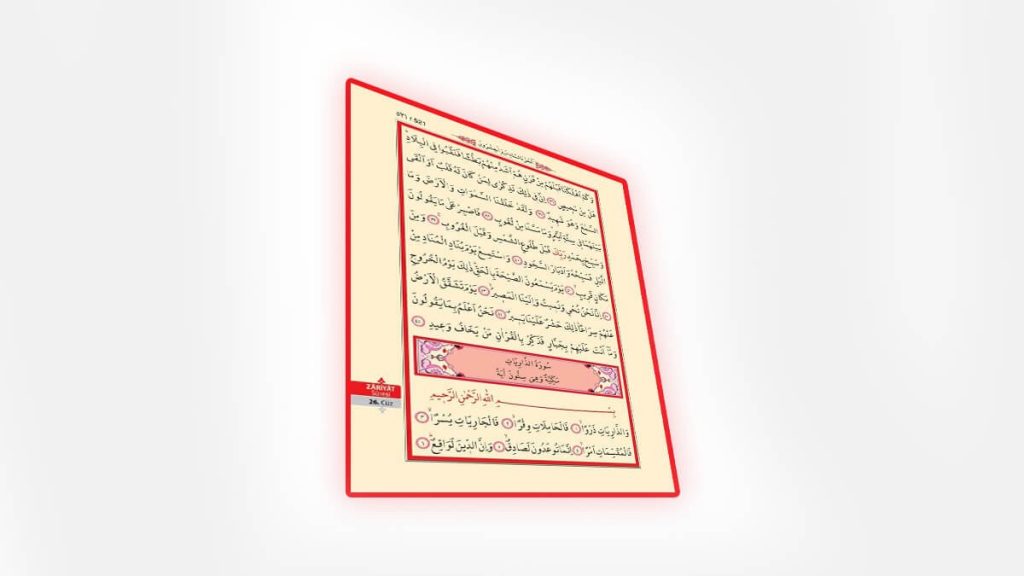 ٥٢١ • 521
اَلْجُزْءُ السَّادِسُ وَالْعِشْرُونَ
وَكَمْ اَهْلَكْنَا قَبْلَهُمْ مِنْ قَرْنٍ هُمْ اَشَدُّ مِنْهُمْ بَطْشًا فَنَقَّبُوا فِي الْبِلَادِۜ
هَلْ مِنْ مَحِيصٍ ﴿٣٦﴾ اِنَّ فِي ذٰلِكَ لَذِكْرٰى لِمَنْ كَانَ لَهُ قَلْبٌ اَوْ اَلْقَى
السَّمْعَ وَهُوَ شَهِيدٌ ﴿٣٧﴾ وَلَقَدْ خَلَقْنَا السَّمٰوَاتِ وَالْاَرْضَ وَمَا
بَيْنَهُمَا فِي سِتَّةِ اَيَّامٍ وَمَا مَسَّنَا مِنْ لُغُوبٍ ﴿٣٨﴾ فَاصْبِرْ عَلٰى مَا يَقُولُونَ
وَسَبِّحْ بِحَمْدِ رَبِّكَ قَبْلَ طُلُوعِ الشَّمْسِ وَقَبْلَ الْغُرُوبِ ﴿٣٩﴾ وَمِنَ
الَّيْلِ فَسَبِّحْهُ وَاَدْبَارَ السُّجُودِ ﴿٤٠﴾ وَاسْتَمِعْ يَوْمَ يُنَادِ الْمُنَادِ مِنْ
مَكَانٍ قَرِيبٍ ﴿٤١﴾ يَوْمَ يَسْمَعُونَ الصَّيْحَةَ بِالْحَقِّ ذٰلِكَ يَوْمُ الْخُرُوجِ
﴿٤٢﴾ اِنَّا نَحْنُ نُحْيِي وَنُمِيتُ وَاِلَيْنَا الْمَصِيرُ ﴿٤٣﴾ يَوْمَ تَشَقَّقُ الْاَرْضُ
عَنْهُمْ سِرَاعًا ذٰلِكَ حَشْرٌ عَلَيْنَا يَسِيرٌ ﴿٤٤﴾ نَحْنُ اَعْلَمُ بِمَا يَقُولُونَ
وَمَا اَنْتَ عَلَيْهِمْ بِجَبَّارٍ فَذَكِّرْ بِالْقُرْاٰنِ مَنْ يَخَافُ وَعِيدِ ﴿٤٥﴾
سُورَةُ الذَّارِيَاتِ
مَكِّيَّةٌ وَهِيَ سِتُّونَ اٰيَةً
بِسْمِ اللّٰهِ الرَّحْمٰنِ الرَّحِيمِ
وَالذَّارِيَاتِ ذَرْوًا ﴿١﴾ فَالْحَامِلَاتِ وِقْرًا ﴿٢﴾ فَالْجَارِيَاتِ يُسْرًا ﴿٣﴾
فَالْمُقَسِّمَاتِ اَمْرًا ﴿٤﴾ اِنَّمَا تُوعَدُونَ لَصَادِقٌ ﴿٥﴾ وَاِنَّ الدِّينَ لَوَاقِعٌ ﴿٦﴾
ZÂRİYÂT
Sûresi
26. Cüz